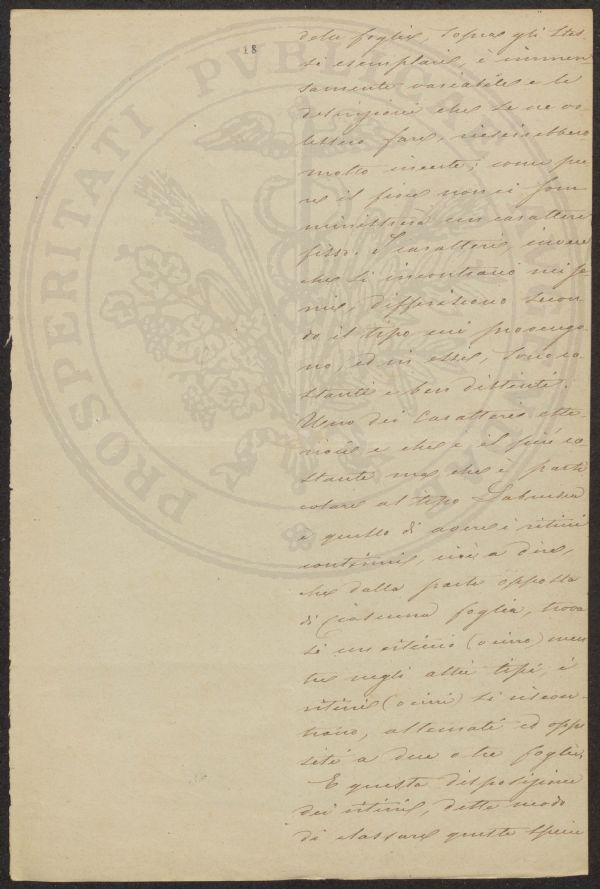 18
PROSPERITATI PVBLICAE AVGENDAE
delle foglie, sopra gli stes-
si esemplari, è immen-
samente variabile e le
descrizioni che se ne vo-
lessero fare, riescirebbero
molto incerte; come pu-
re il fiore non ci som-
ministra un carattere
fisso. I caratteri invece
che si incontrano nei se-
mi, differiscono secon-
do il tipo cui proven­go-
no, ed in essi, sono co-
stanti e ben distinti.
Uno dei Caratteri este-
riori e che è il più co-
stante ma che è parti-
colare al tipo Labrusca
è quello di avere i viticci
continui, cioè a dire,
che dalla parte opposta
di ciascuna foglia, trova
si un viticcio (o cirro) men
tre negli altri tipi, i
viticci (o cirri) si riscon-
trano, alternati ed oppo
sti a due o tre foglie.
E questa disposizione
dei viticci, detta modo
di classare queste specie